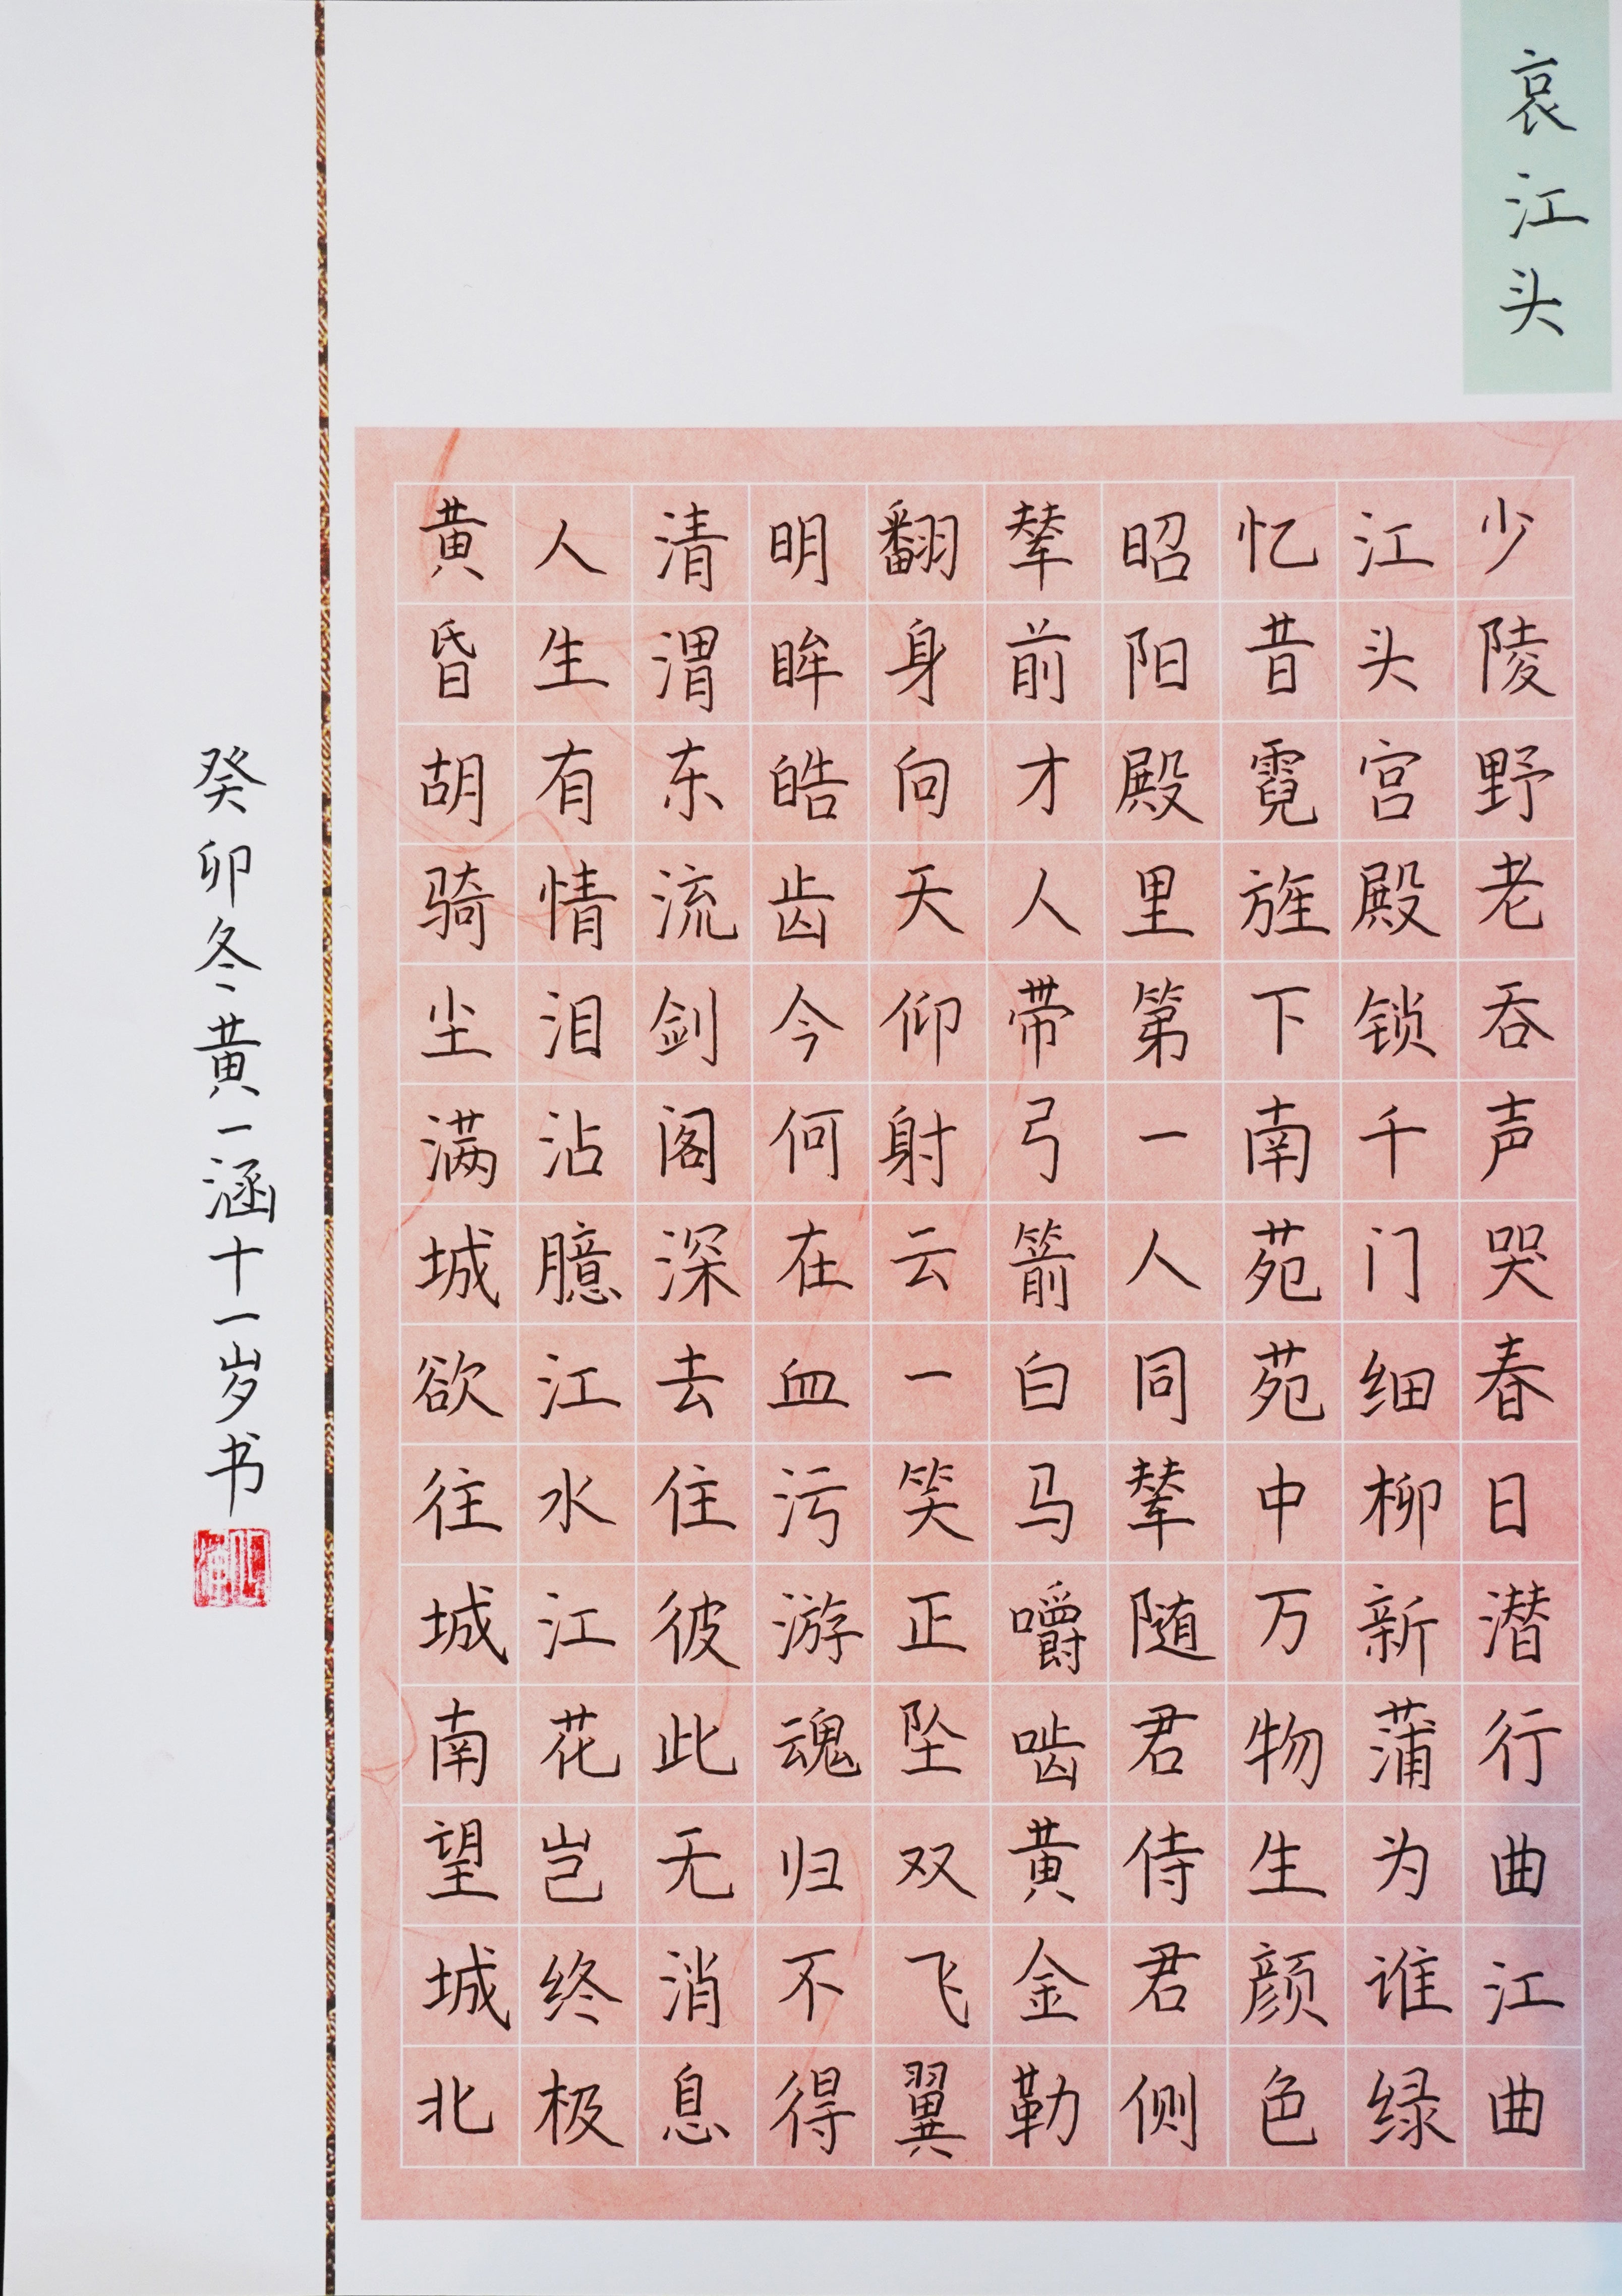 哀江头
少陵野老吞声哭春日潜行曲江曲
江头宫殿锁千门细柳新蒲为谁绿
忆昔霓旌下南苑苑中万物生颜色
昭阳殿里第一人同辇随君侍君侧
辇前才人带弓箭白马嚼啮黄金勒
翻身向天仰射云一笑正坠双飞翼
明眸皓齿今何在血污游魂归不得
清渭东流剑阁深去住彼此无消息
人生有情泪沾臆江水江花岂终极
黄昏胡骑尘满城欲往城南望城北
癸卯冬黄一涵十一岁书